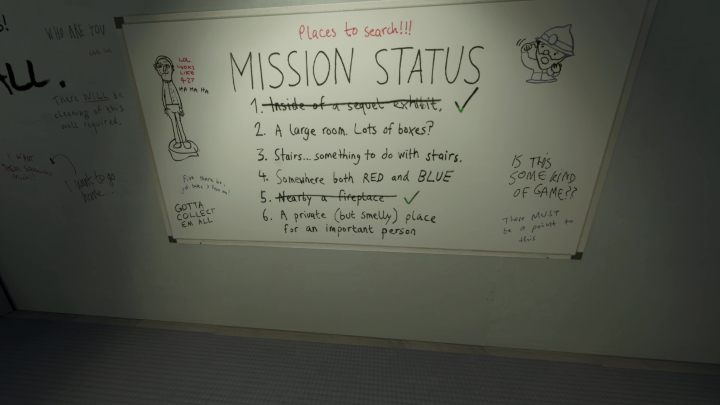 Places to search!!!
MISSION STATUS
1. Inside of a sequel exhibit.
2. A large room. Lots of boxes?
3. Stairs... something to do with stairs.
4. Somewhere both RED and BLUE
5. Nearby a fireplace
6. A private (but smelly) place
for an important person
LOL
LOOKS
LIKE
427
HA HA HA
GOTTA
COLLECT
EM ALL
IS THIS
SOME KIND
OF GAME??
There MUST
be a point to
this
WHO ARE YOU
ALL.
There WILL be
cleaning of this
wall required.
I want to go
home...